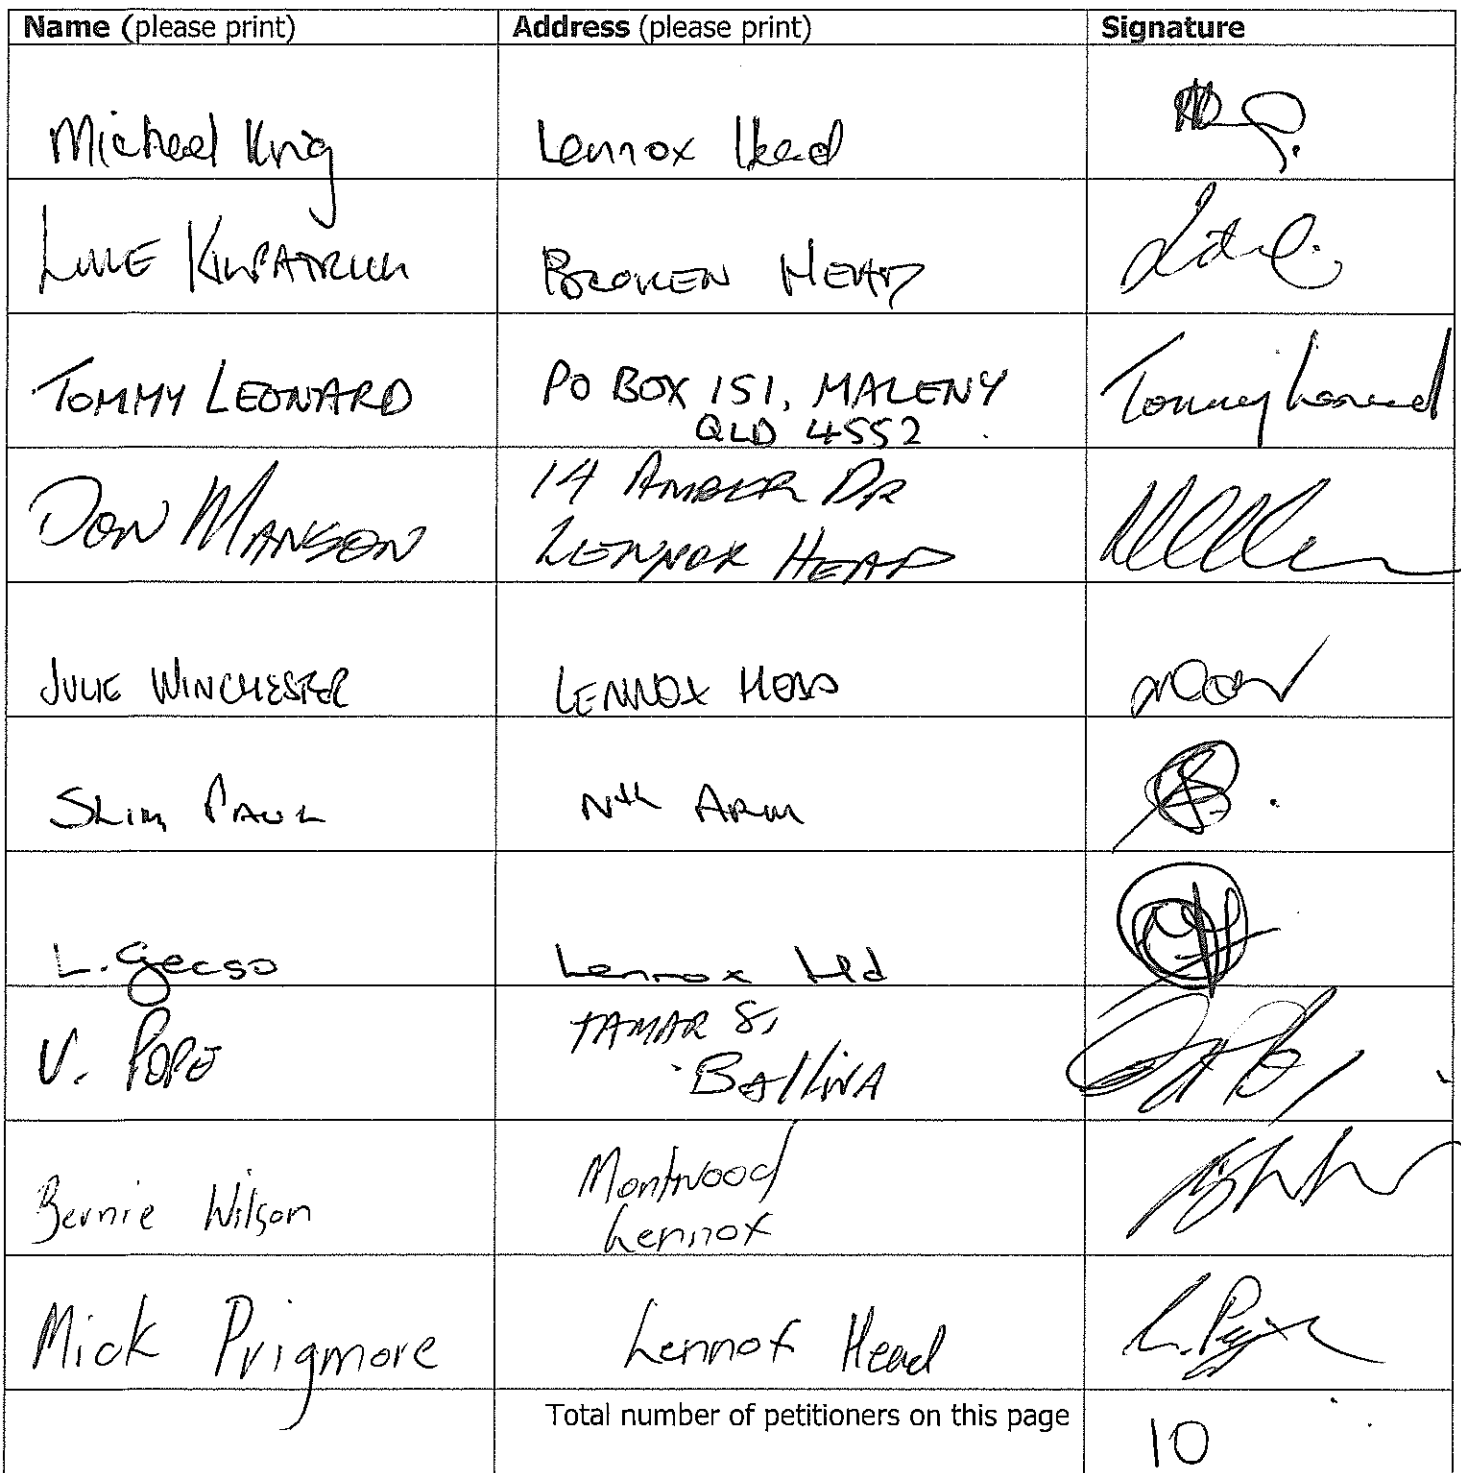 Name (please print) Address (please print) Signature
Michael King Lennox Head
LUKE KILPATRICK BROKEN HEAD
TOMMY LEONARD PO BOX 151, MALENY Tommy Leonard
QLD 4552
DON MANSON 14 AMBER DR
LENNOX HEAD
JULIE WINCHESTER LENNOX HEAD
SLIM PAUL Nth ARM
L. Gecso Lennox Hd
V. POPE TAMAR ST
BALLINA
Bernie Wilson Montwood
Lennox
Mick Prigmore Lennox Head
Total number of petitioners on this page 10